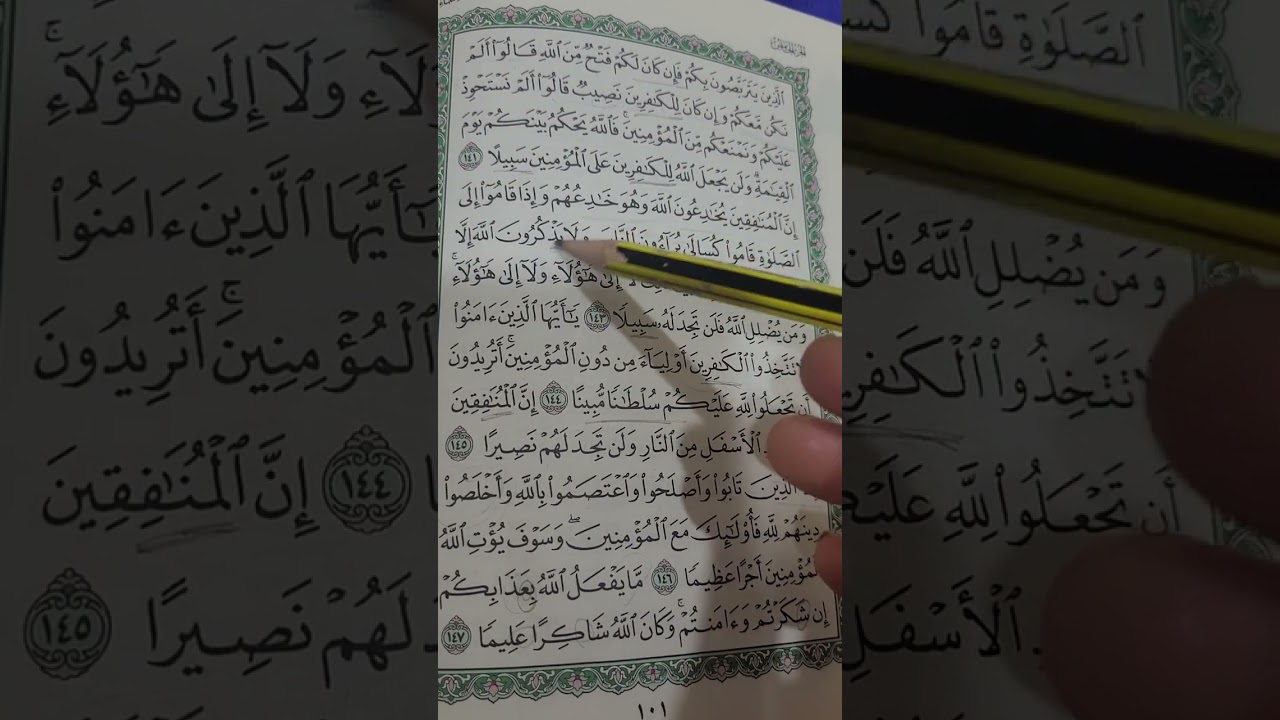 ٱلَّذِينَ يَتَرَبَّصُونَ بِكُمْ فَإِن كَانَ لَكُمْ فَتْحٌ مِّنَ ٱللَّهِ قَالُوٓا۟ أَلَمْ
نَكُن مَّعَكُمْ وَإِن كَانَ لِلْكَٰفِرِينَ نَصِيبٌ قَالُوٓا۟ أَلَمْ نَسْتَحْوِذْ
عَلَيْكُمْ وَنَمْنَعْكُم مِّنَ ٱلْمُؤْمِنِينَ ۚ فَٱللَّهُ يَحْكُمُ بَيْنَكُمْ يَوْمَ
ٱلْقِيَٰمَةِ ۗ وَلَن يَجْعَلَ ٱللَّهُ لِلْكَٰفِرِينَ عَلَى ٱلْمُؤْمِنِينَ سَبِيلًا ١٤١
إِنَّ ٱلْمُنَٰفِقِينَ يُخَٰدِعُونَ ٱللَّهَ وَهُوَ خَٰدِعُهُمْ وَإِذَا قَامُوٓا۟ إِلَى
ٱلصَّلَوٰةِ قَامُوا۟ كُسَالَىٰ يُرَآءُونَ وَلَا يَذْكُرُونَ ٱللَّهَ إِلَّا
إِلَىٰ هَٰٓؤُلَآءِ وَلَآ إِلَىٰ هَٰٓؤُلَآءِ ۚ
وَمَن يُضْلِلِ ٱللَّهُ فَلَن تَجِدَ لَهُۥ سَبِيلًا ١٤٣ يَٰٓأَيُّهَا ٱلَّذِينَ ءَامَنُوا۟
لَا تَتَّخِذُوا۟ ٱلْكَٰفِرِينَ أَوْلِيَآءَ مِن دُونِ ٱلْمُؤْمِنِينَ ۚ أَتُرِيدُونَ
أَن تَجْعَلُوا۟ لِلَّهِ عَلَيْكُمْ سُلْطَٰنًا مُّبِينًا ١٤٤ إِنَّ ٱلْمُنَٰفِقِينَ
ٱلْأَسْفَلِ مِنَ ٱلنَّارِ وَلَن تَجِدَ لَهُمْ نَصِيرًا ١٤٥
ٱلَّذِينَ تَابُوا۟ وَأَصْلَحُوا۟ وَٱعْتَصَمُوا۟ بِٱللَّهِ وَأَخْلَصُوا۟
دِينَهُمْ لِلَّهِ فَأُو۟لَٰٓئِكَ مَعَ ٱلْمُؤْمِنِينَ ۖ وَسَوْفَ يُؤْتِ ٱللَّهُ
ٱلْمُؤْمِنِينَ أَجْرًا عَظِيمًا ١٤٦ مَّا يَفْعَلُ ٱللَّهُ بِعَذَابِكُمْ
إِن شَكَرْتُمْ وَءَامَنتُمْ ۚ وَكَانَ ٱللَّهُ شَاكِرًا عَلِيمًا ١٤٧
١٠١